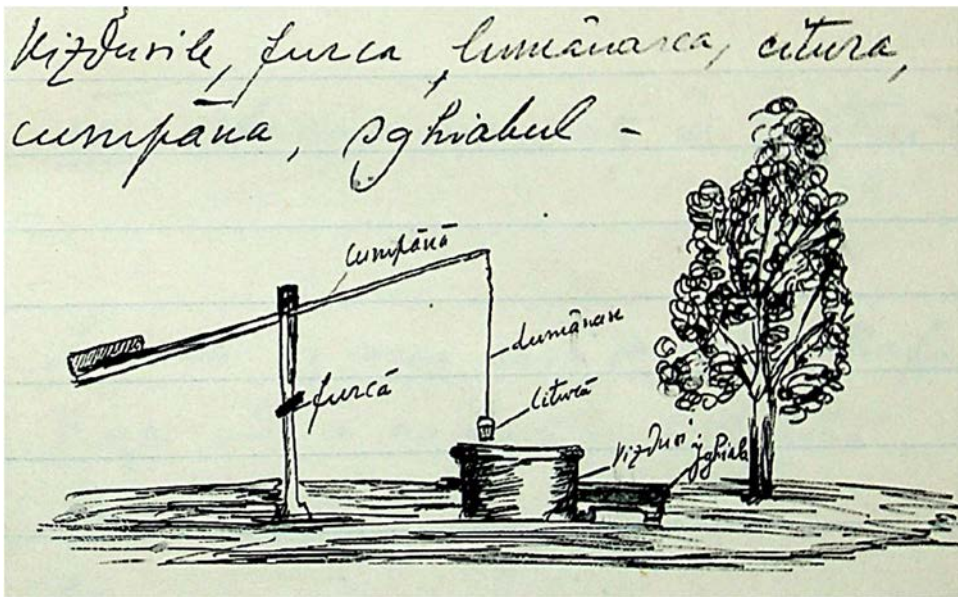 Vizdurile, furca, lumânarea, citura,
cumpăna, sghiabul -
cumpănă
lumânare
furcă
citură
vizduri
jghiab